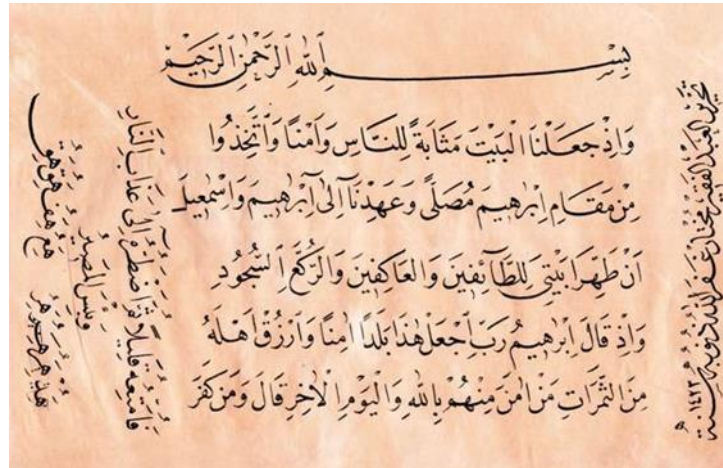 بِسْمِ اللهِ الرَّحْمٰنِ الرَّحِيْمِ
وَاِذْ جَعَلْنَا الْبَيْتَ مَثَابَةً لِلنَّاسِ وَاَمْنًا وَاتَّخِذُوا
مِنْ مَقَامِ اِبْرٰهِيمَ مُصَلًّى وَعَهِدْنَآ اِلٰٓى اِبْرٰهِيمَ وَاِسْمٰعِيلَ
اَنْ طَهِّرَا بَيْتِىَ لِلطَّآئِفِينَ وَالْعَاكِفِينَ وَالرُّكَّعِ السُّجُودِ
وَاِذْ قَالَ اِبْرٰهِيمُ رَبِّ اجْعَلْ هٰذَا بَلَدًا اٰمِنًا وَارْزُقْ اَهْلَهُ
مِنَ الثَّمَرَاتِ مَنْ اٰمَنَ مِنْهُمْ بِاللهِ وَالْيَوْمِ الْاٰخِرِ قَالَ وَمَنْ كَفَرَ
فَاُمَتِّعُهُ قَلِيلًا ثُمَّ اَضْطَرُّهُٓ اِلٰى عَذَابِ النَّارِ
وَبِئْسَ الْمَصِيرُ
تحرير العبد الفقير مختار غفر الله ذنوبه سنة ١٤٢٣